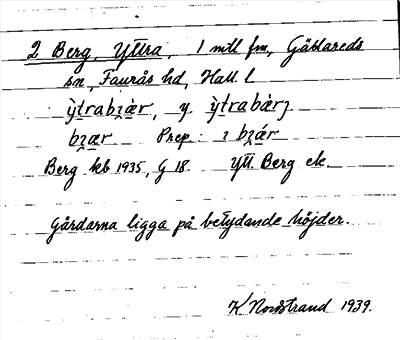 2 Berg, Yttra, 1 mtl fm, Gällareds
sn, Faurås hd, Hall. l.
ỳtrabʒær, y. ỳtrabàrʒ
bʒær Prep: ɪ bʒár
Berg kb 1935, G 18. Ytt. Berg ek.
Gårdarna ligga på betydande höjder.
K Nordstrand 1939.